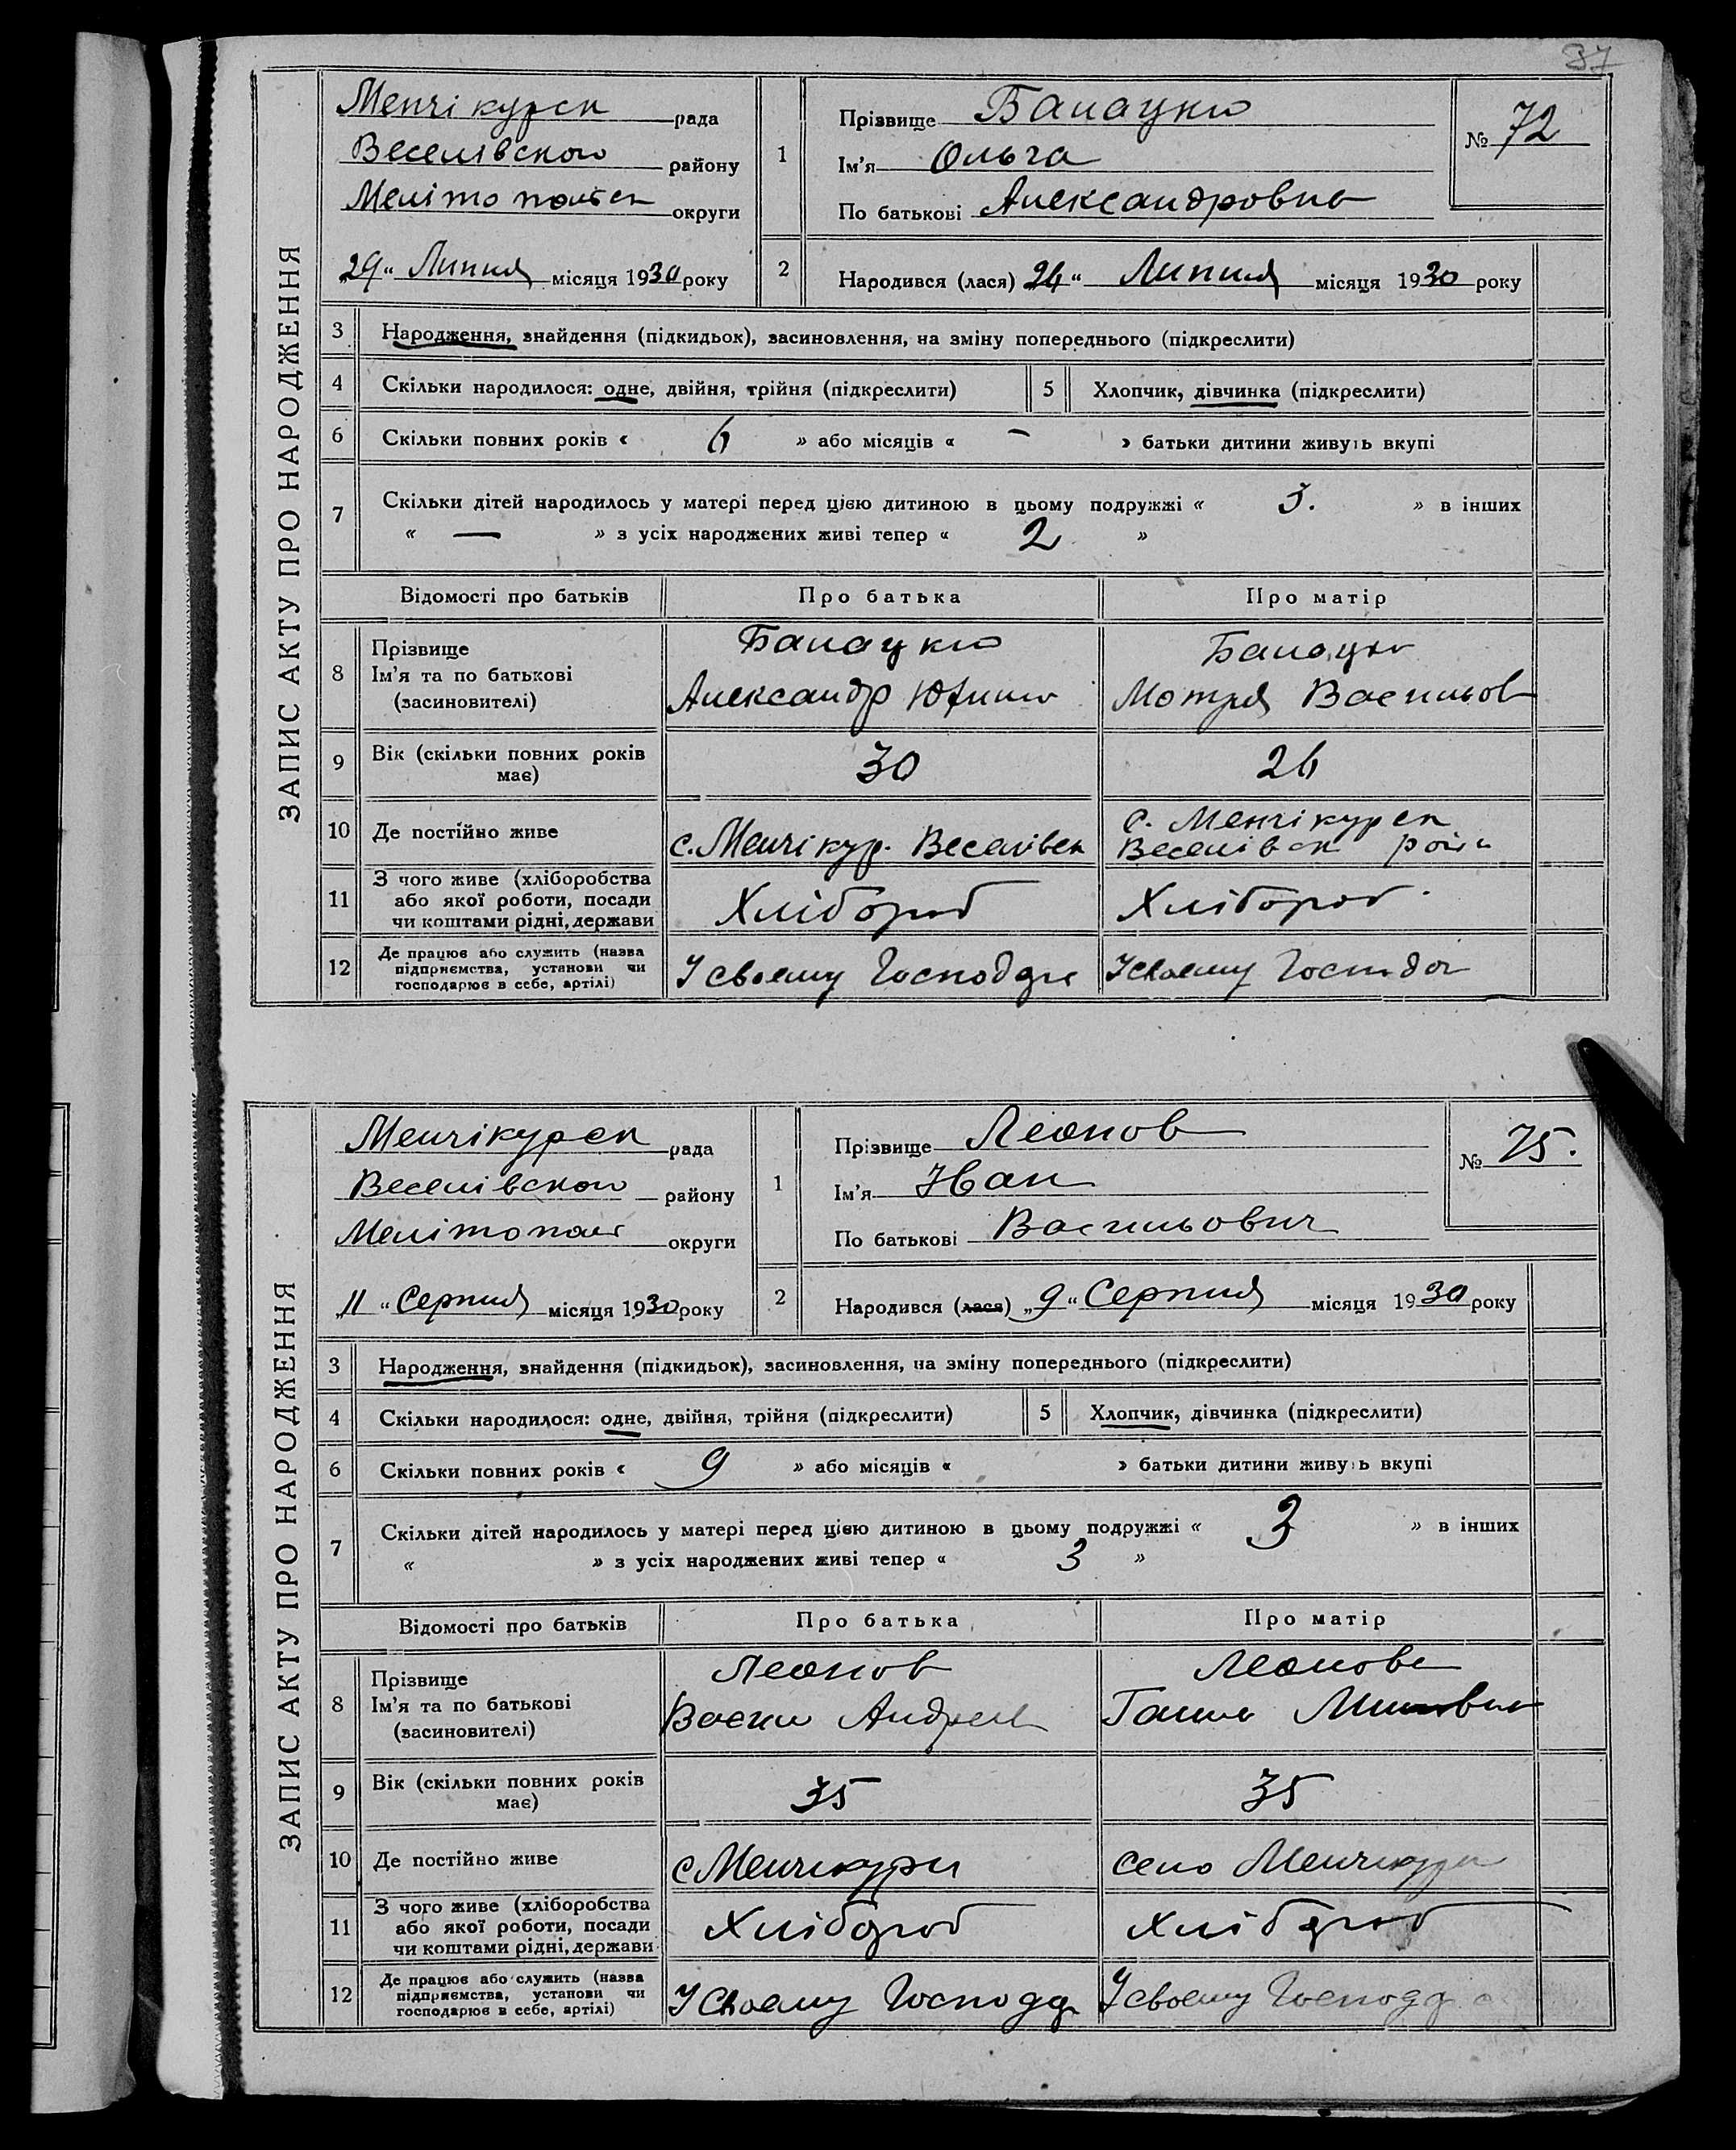 37
ЗАПИС АКТУ ПРО НАРОДЖЕННЯ
Менчікурск рада
Веселівского району
Мелітопольск округи
„29“ Липня місяця 1930 року
1
Прізвище
Ім'я Ольга
По батькові Александровна
№ 72
2
Народився (лася) 24“ Липня місяця 1930 року
3 Народження, знайдення (підкидьок), засиновлення, на зміну попереднього (підкреслити)
4 Скільки народилося: одне, двійня, трійня (підкреслити) 5 Хлопчик, дівчинка (підкреслити)
6 Скільки повних років « 6 » або місяців « – » батьки дитини живуть вкупі
7 Скільки дітей народилось у матері перед цією дитиною в цьому подружжі « 3. » в інших
« — » з усіх народжених живі тепер « 2 »
Відомості про батьків Про батька Про матір
8 Прізвище
Ім'я та по батькові
(засновителі)
Александр
Мотря Васильов
9 Вік (скільки повних років має) 30 26
10 Де постійно живе с. Менчікур. Веселівск с. Менчікурск
Веселівск
11 З чого живе (хліборобства
або якої роботи, посади
чи коштами рідні, держави
Хлібороб Хлібороб
12 Де працює або служить (назва
підприємства, установи чи
господарює в себе, артілі)
У своему У своему
ЗАПИС АКТУ ПРО НАРОДЖЕННЯ
Менчікурск рада
Веселівского району
Мелітопол округи
„11“ Серпня місяця 1930 року
1
Прізвище Леонов
Ім'я Иван
По батькові Васильович
№ 75.
2
Народився (лася) „9“ Серпня місяця 1930 року
3 Народження, знайдення (підкидьок), засиновлення, на зміну попереднього (підкреслити)
4 Скільки народилося: одне, двійня, трійня (підкреслити) 5 Хлопчик, дівчинка (підкреслити)
6 Скільки повних років « 9 » або місяців « » батьки дитини живуть вкупі
7 Скільки дітей народилось у матері перед цією дитиною в цьому подружжі « 3 » в інших
« » з усіх народжених живі тепер « 3 »
Відомості про батьків Про батька Про матір
8 Прізвище
Ім'я та по батькові
(засновителі)
Леонов Леонова
Андреев Ганна
9 Вік (скільки повних років має) 35 35
10 Де постійно живе с Менчикури село Менчикури
11 З чого живе (хліборобства
або якої роботи, посади
чи коштами рідні, держави
Хлібороб Хлібороб
12 Де працює або служить (назва
підприємства, установи чи
господарює в себе, артілі)
У своему У своему